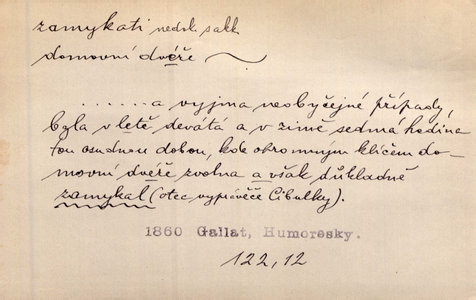 zamykati nedok. sakk
domovní dvéře ~
......a vyjma neobyčejné případy,
byla v letě devátá a v zime sedmá hodina
tou osudnou dobou, kde ohromným klíčem do-
movní dvéře zvolna a však důkladně
zamykal (otec vypravěče Cibulky).
1860 Gallat, Humoresky.
122, 12